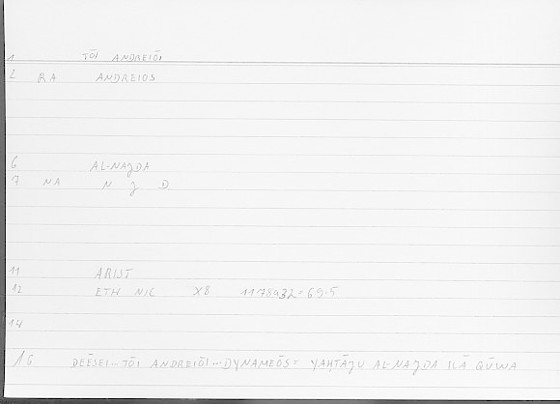 1 TŌI ANDREIŌI
2 RA ANDREIOS
6 AL-NAJDA
7 NA N J D
11 ARIST
12 ETH NIC X8 1178a32 = 69.5
14
16 DEĒSEI... TŌI ANDREIŌI... DYNAMEŌS = YAḤTĀJU AL-NAJDA ILĀ QŪWA